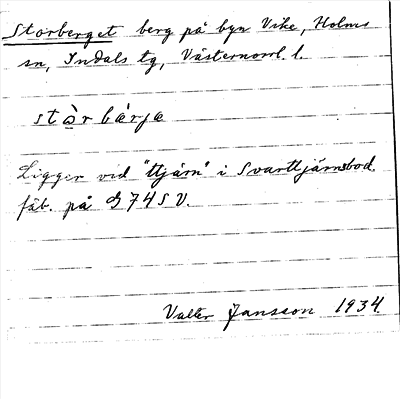 Storberget berg på byn Vike, Holms
sn, Indals tg, Västernorrl. l.
stòr bárja
Ligger vid "ttjärn" i Svarttjärnsbod.
fäb. på G74SV.
Valter Jansson 1934.